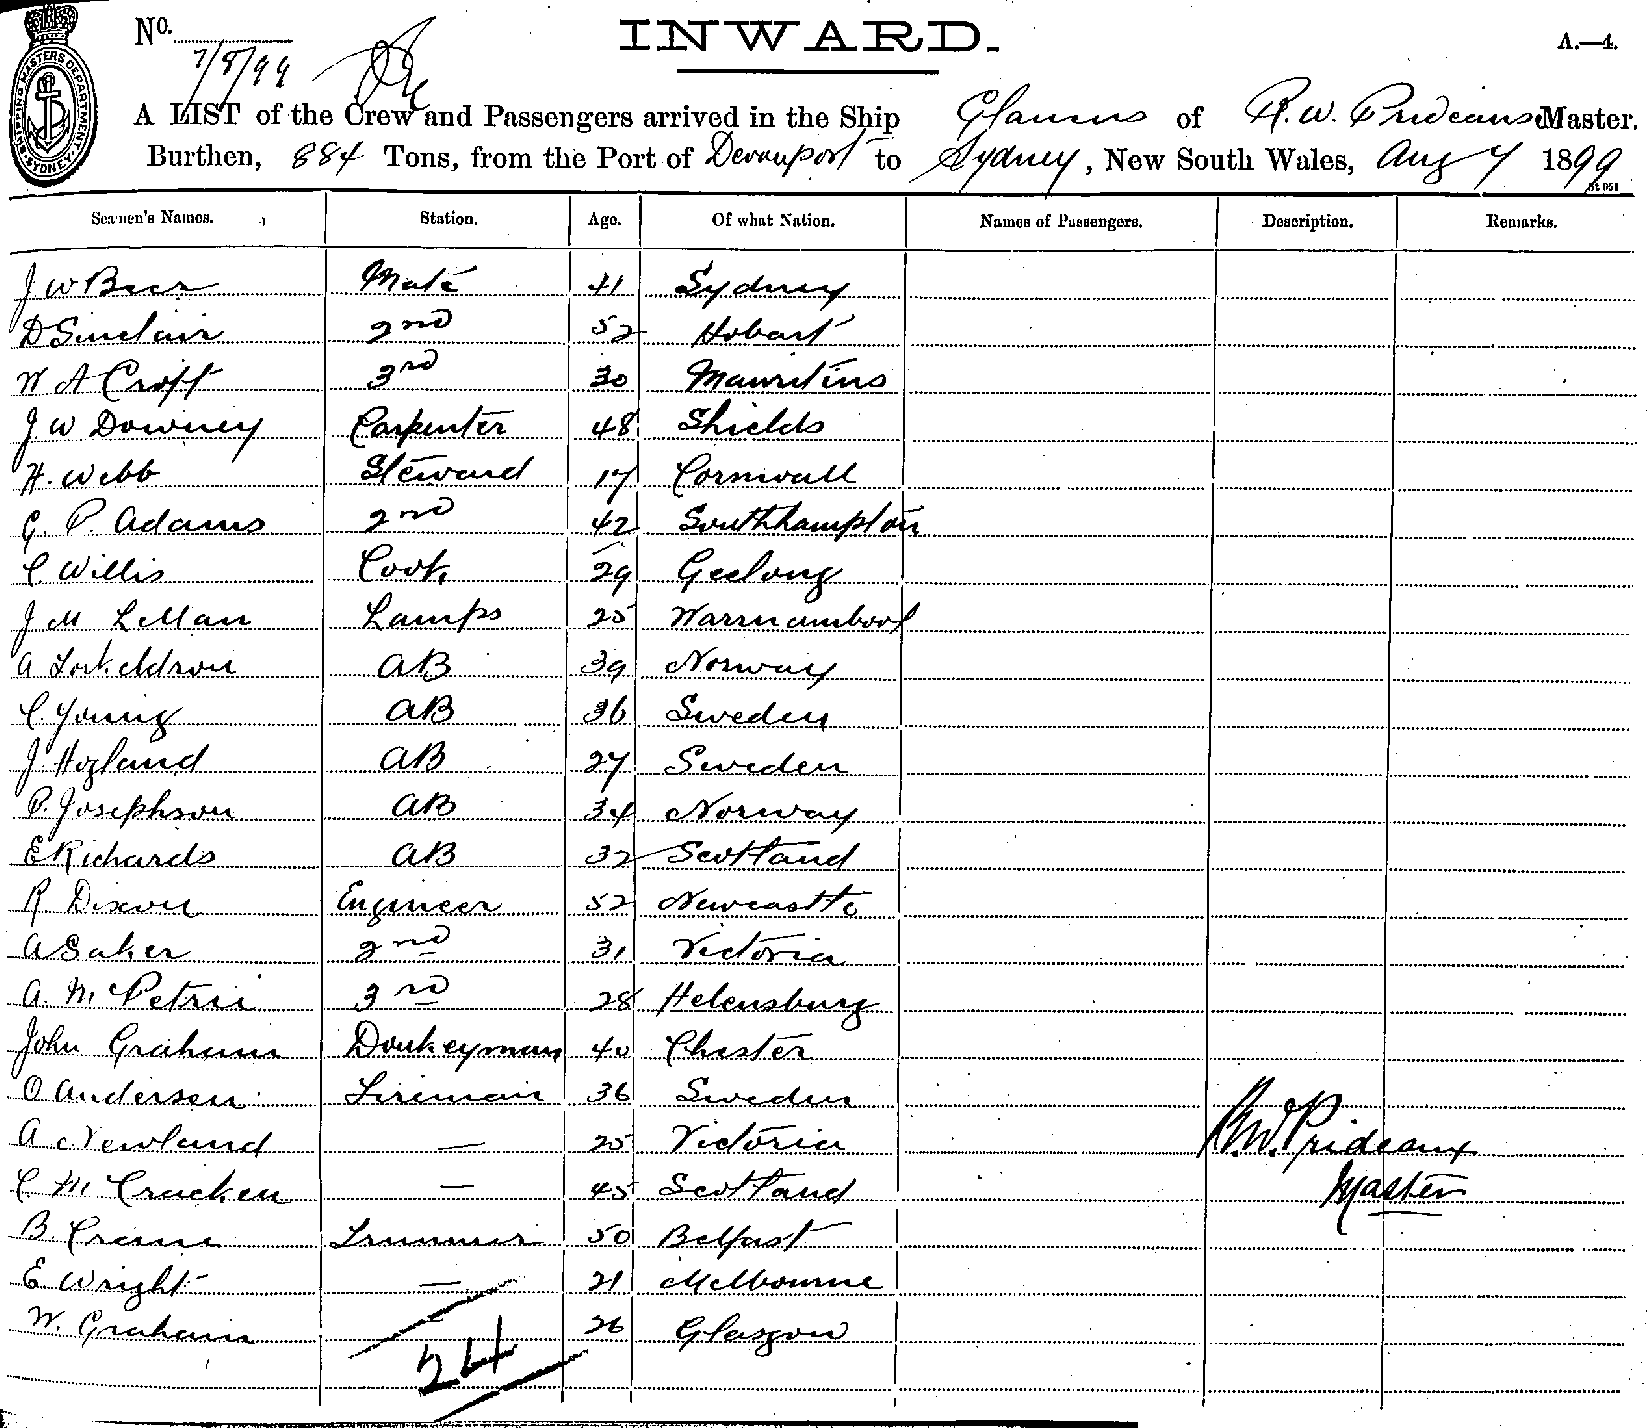 No.
INWARD.
A.—4.
7/8/99
A LIST of the Crew and Passengers arrived in the Ship Glaucus of R. W. Prideaux Master.
Burthen, 884 Tons, from the Port of Devonport to Sydney, New South Wales, Aug 7 1899
Seamen's Names. Station. Age. Of what Nation. Names of Passengers. Description. Remarks.
J W Mate 41 Sydney
D Sinclair 2nd 52 Hobart
W A Croft 3rd 30 Mauritius
J W Downey Carpenter 48 Shields
H. Webb Steward 17 Cornwall
G. P. Adams 2nd 42 Southhampton
C Willis Cook 29 Geelong
J M LeMan Lamps 25 Warrnambool
A AB 39 Norway
C Young AB 36 Sweden
J Hogland AB 27 Sweden
P. Josephson AB 34 Norway
E Richards AB 32 Scotland
R Dixon Engineer 52 Newcastle
A Baker 2nd 31 Victoria
A. M Petrie 3rd 28 Helensburg
John Graham Donkeyman 40 Chester
O Andersen Fireman 36 Sweden
A Newland — 25 Victoria
R.W. Prideaux
C McCracken — 45 Scotland
Master
B Trimmer 50 Belfast
E Wright — 21 Melbourne
W. Graham 26 Glasgow
24